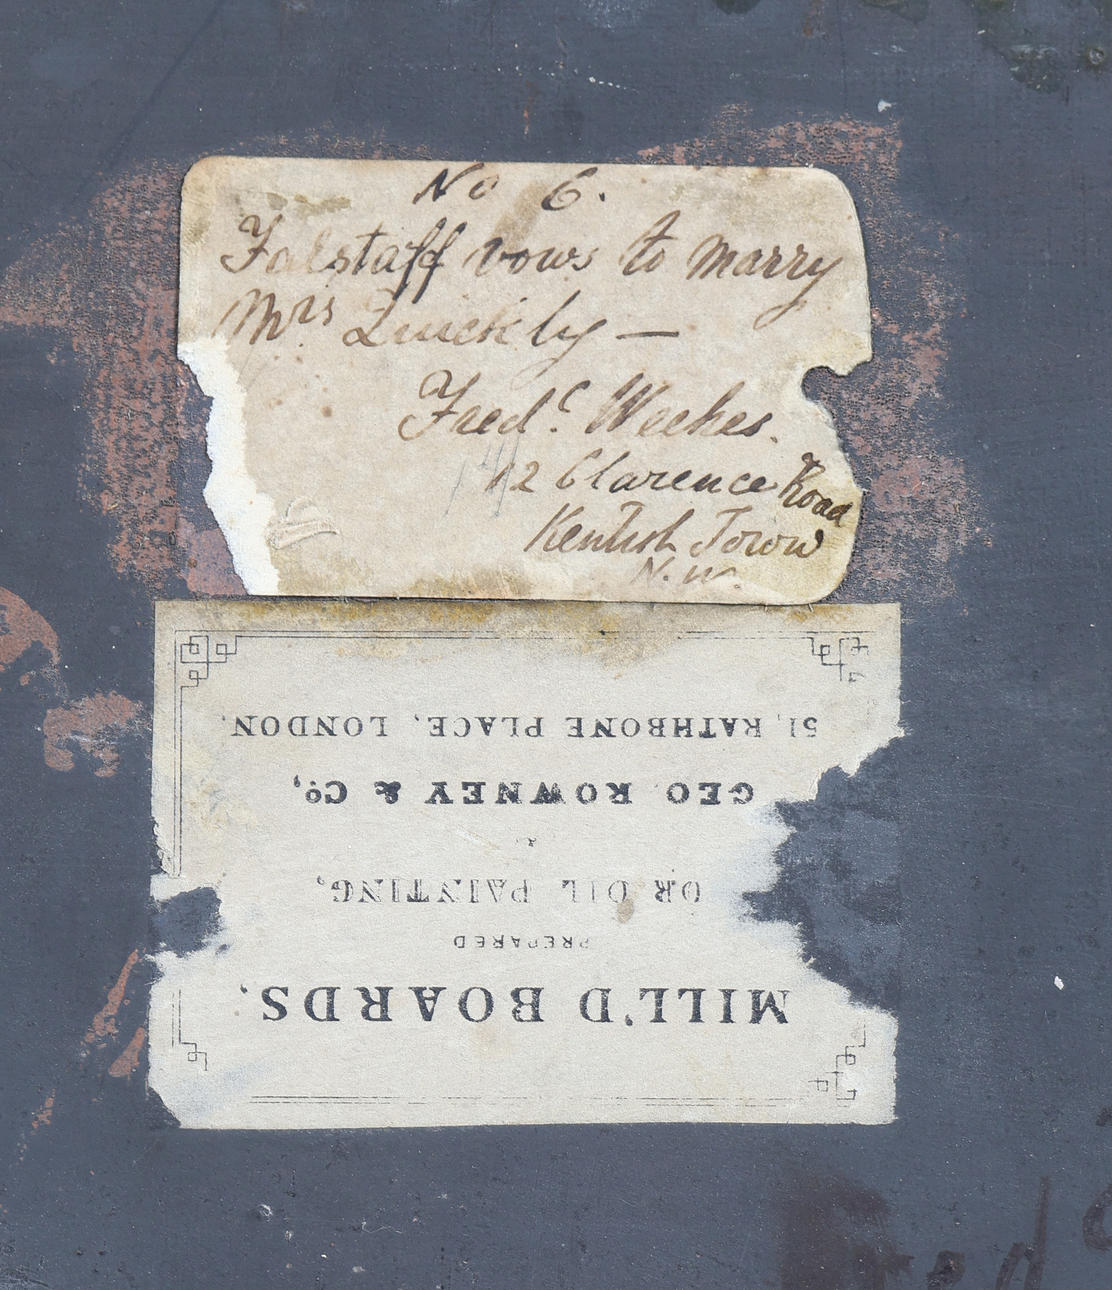 No 6.
Falstaff vows to marry
Mrs Quickly —
Fredc. Weekes.
12 Clarence Road
Kentish Town
N.W.
MILL'D BOARDS,
PREPARED
OR OIL PAINTING,
&
GEO. ROWNEY & Co,
51, RATHBONE PLACE, LONDON.